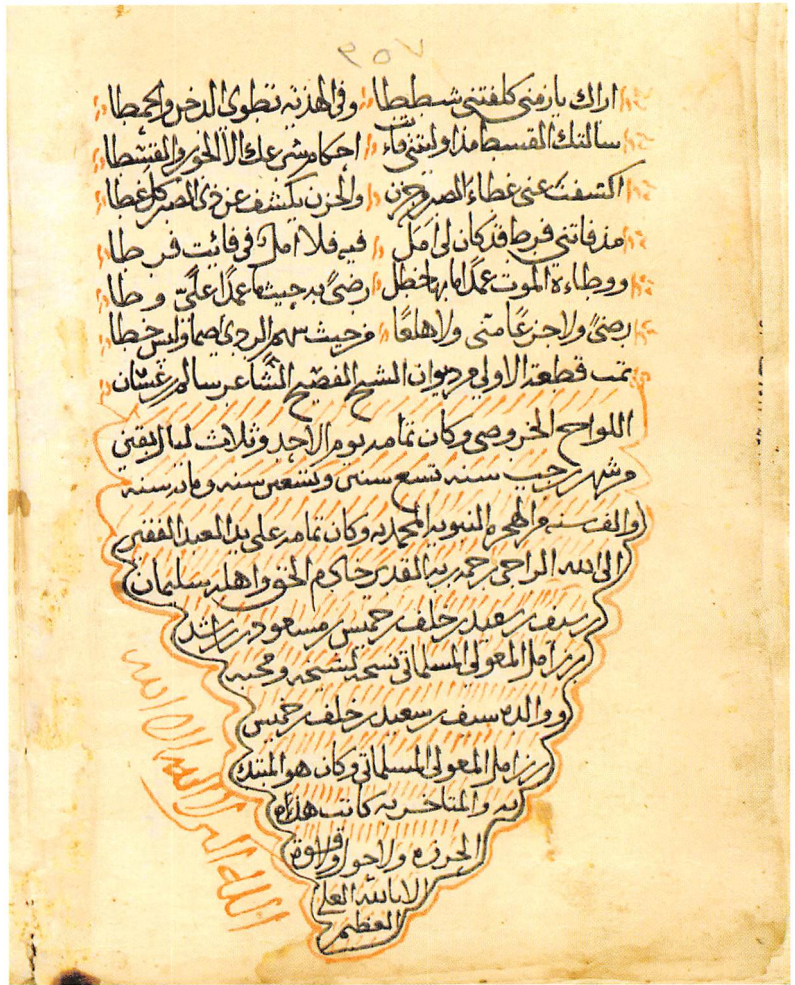 ٩٥٧
اراك يا زمني كلفتني شططا وفي الهذنه تطوى الدخن والحمطا
سالتك القسط مذ اوليتني احكام شرعك الا الجور والقسطا
اكتسفت عني غطاء الصبر حزن والحزن يكشف عن ذي الصبر كل غطا
مذ فاتني فرط قد كان لي امل فيه فلا امل في فائت فرطا
ووطاءة الموت عمدا رضى به حيث ما عمدا علي وطا
رضى ولا جزعا مني ولا هلعا من حيث سهم الردى اصما وليس خطا
تمت قطعة الاولي من ديوان الشيخ الفصيح الشاعر سالم بن غسان
اللواح الخروصي وكان تمامه يوم الاحد وثلاث ليال بقين
من شهر رجب سنه تسع سنين وتسعين سنه ومائه سنه
والف سنه من الهجره النبويه المحمديه وكان تمامه على يد العبد الفقير
الى الله الراجي رحمه ربه القدير خادم الحق واهله سليمان
بن سيف بن سعيد بن خلف بن خميس بن مسعود بن راشد
بن زامل المعولي المسلماتي نسخه لشيخه ومحبه
ووالده سيف بن سعيد بن خلف بن خميس
بن زامل المعولي المسلماتي وكان هو المبتدي
به والمتاخر به كاتب هذه
الحرزه ولا حول ولا قوة
الا بالله العلي
العظيم